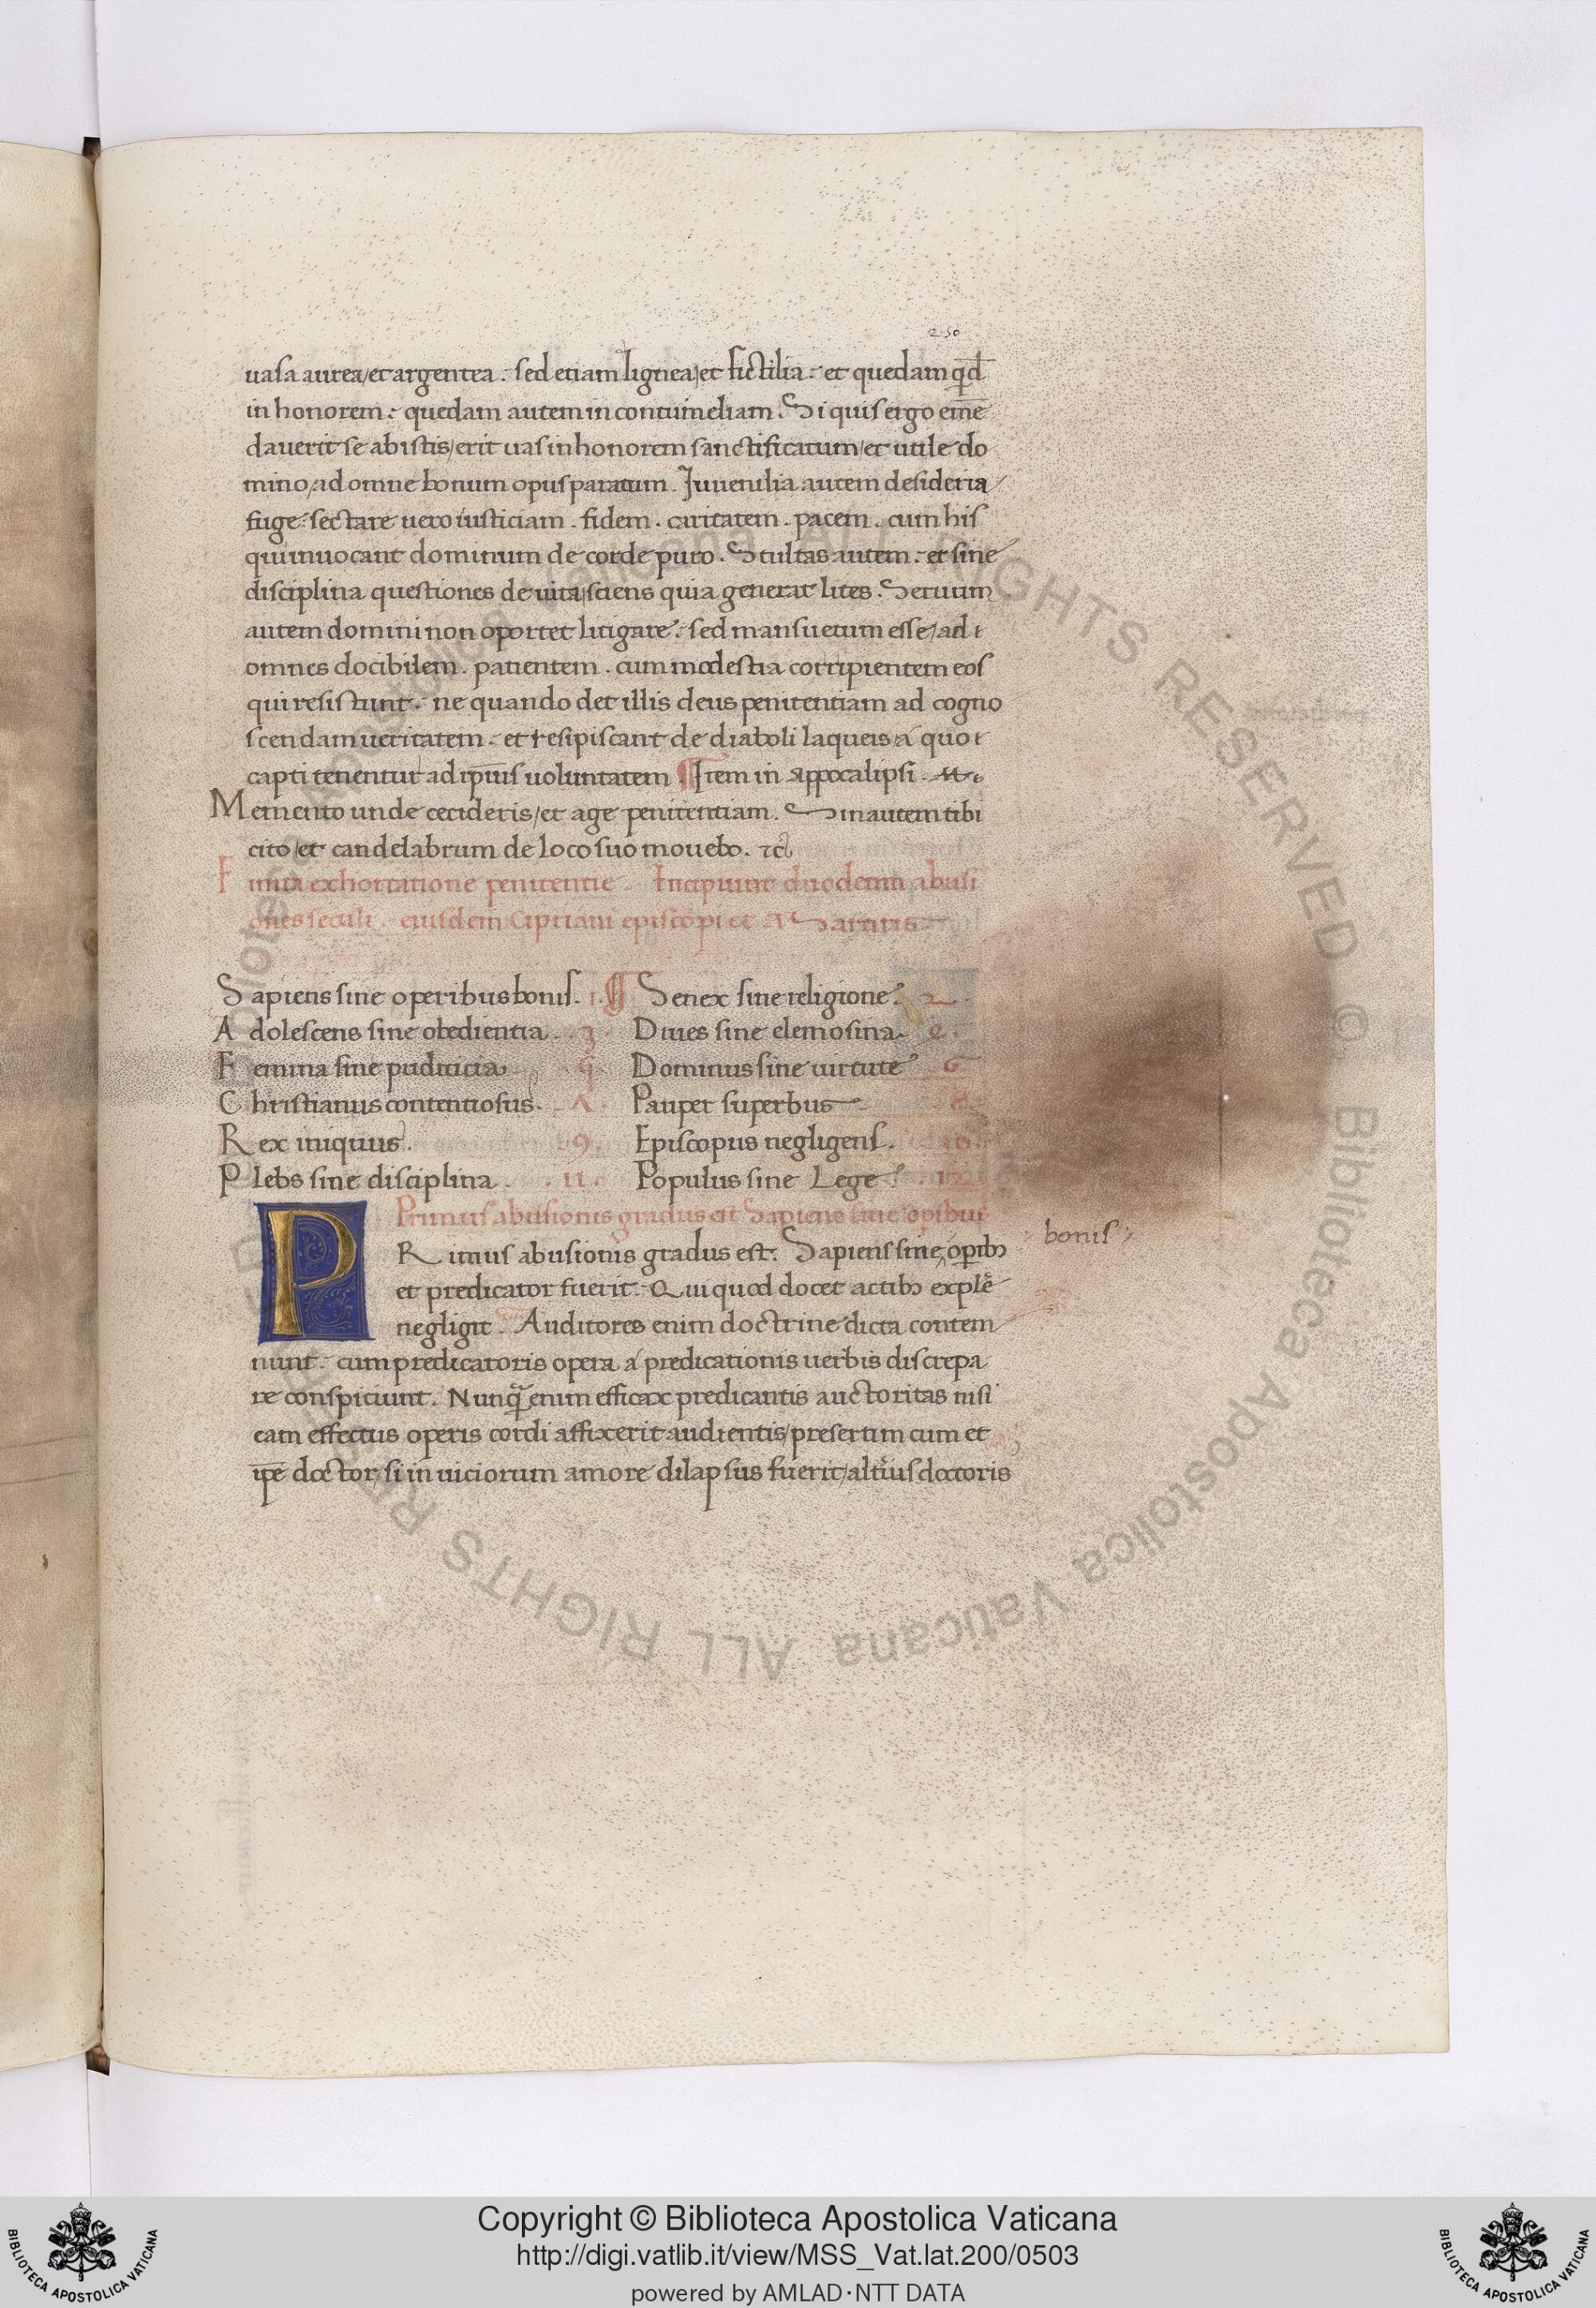 250
uasa aurea/et argentea. sed etiam lignea/et fictilia. et quedam qd̄
in honorem. quedam autem in contumeliam. Si quis ergo emē
dauerit se ab istis/erit uas in honorem sanctificatum/et utile do
mino/ad omne bonum opus paratum. Iuuenilia autem desideria
fuge. sectare uero iusticiam. fidem. caritatem. pacem. cum his
qui inuocant dominum de corde puro. Stultas autem. et sine
disciplina questiones deuita/sciens quia generat lites. Seruum
autem domini non oportet litigare. sed mansuetum esse/ad
omnes docibilem. patientem. cum modestia corripientem eos
qui resistunt. ne quando det illis deus penitentiam ad cogno
scendam ueritatem. et resipiscant de diaboli laqueis a quo
capti tenentur ad ip̄ius uoluntatem. ¶ Item in appocalipsi.
Memento unde cecideris/et age penitentiam. Sin autem tibi
cito/et candelabrum de loco suo mouebo. ⁊c̄
Finita exhortatione penitentie. Incipiunt duodecim abusi
ones seculi. eiusdem Cipriani episcopi et
Sapiens sine operibus bonis. 1. ¶ Senex sine religione. 2.
Adolescens sine obedientia. 3 Diues sine elemosina.
Femina sine pudicicia Dominus sine uirtute 6
Christianus contentiosus. Λ. Pauper superbus 8
Rex iniquus. 9. Episcopus negligens. 10
Plebs sine disciplina. .11. Populus sine Lege. .12.
Primus abusionis gradus est Sapiens sine operibus
PRimus abusionis gradus est. Sapiens sine operib; bonis
et predicator fuerit. Qui quod docet actib; explē
negligit. Auditores enim doctrine dicta contem
nunt. cum predicatoris opera a predicationis uerbis discrepa
re conspiciunt. Nunq̄ enim efficax predicantis auctoritas nisi
eam effectus operis cordi affixerit audientis/presertim cum et
ip̄e doctor si in uiciorum amore dilapsus fuerit/alterius doctoris
Copyright © Biblioteca Apostolica Vaticana
http://digi.vatlib.it/view/MSS_Vat.lat.200/0503
powered by AMLAD·NTT DATA
BIBLIOTECA APOSTOLICA VATICANA
BIBLIOTECA APOSTOLICA VATICANA
© Biblioteca Apostolica Vaticana ALL RIGHTS RESERVED © Biblioteca Apostolica Vaticana ALL RIGHTS RESERVED